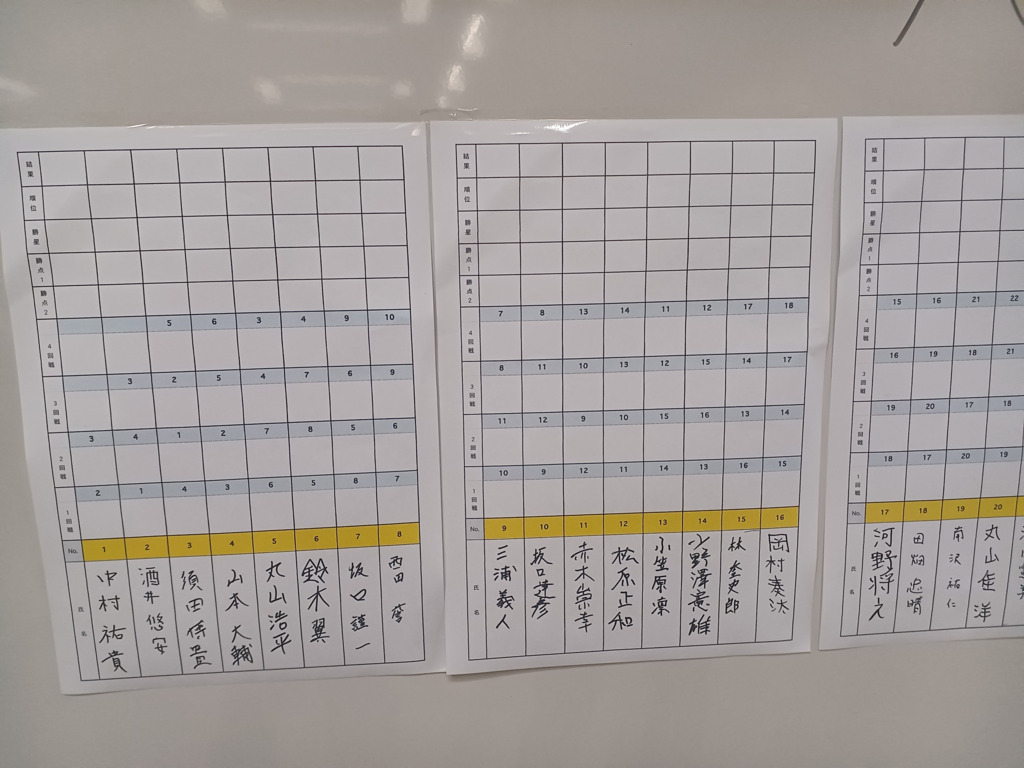 結果
順位
勝星
勝点1
勝点2
4回戦 5 6 3 4 9 10
3回戦 3 2 5 4 7 6 9
2回戦 3 4 1 2 7 8 5 6
1回戦 2 1 4 3 6 5 8 7
No. 1 2 3 4 5 6 7 8
氏名 中村祐貴 酒井悠安 須田 山本大輔 丸山浩平 鈴木翼 坂口謹一 西田
結果
順位
勝星
勝点1
勝点2
4回戦 7 8 13 14 11 12 17 18
3回戦 8 11 10 13 12 15 14 17
2回戦 11 12 9 10 15 16 13 14
1回戦 10 9 12 11 14 13 16 15
No. 9 10 11 12 13 14 15 16
氏名 三浦義人 坂口達彦 赤木崇幸 松原正和 小笠原凍 小野澤憲雄 林 岡村湊汰
結果
順位
勝星
勝点1
勝点2
4回戦 15 16 21 22
3回戦 16 19 18 21
2回戦 19 20 17 18
1回戦 18 17 20 19
No. 17 18 19 20
氏名 河野将之 田畑忠晴 南沢祐仁 丸山 洋